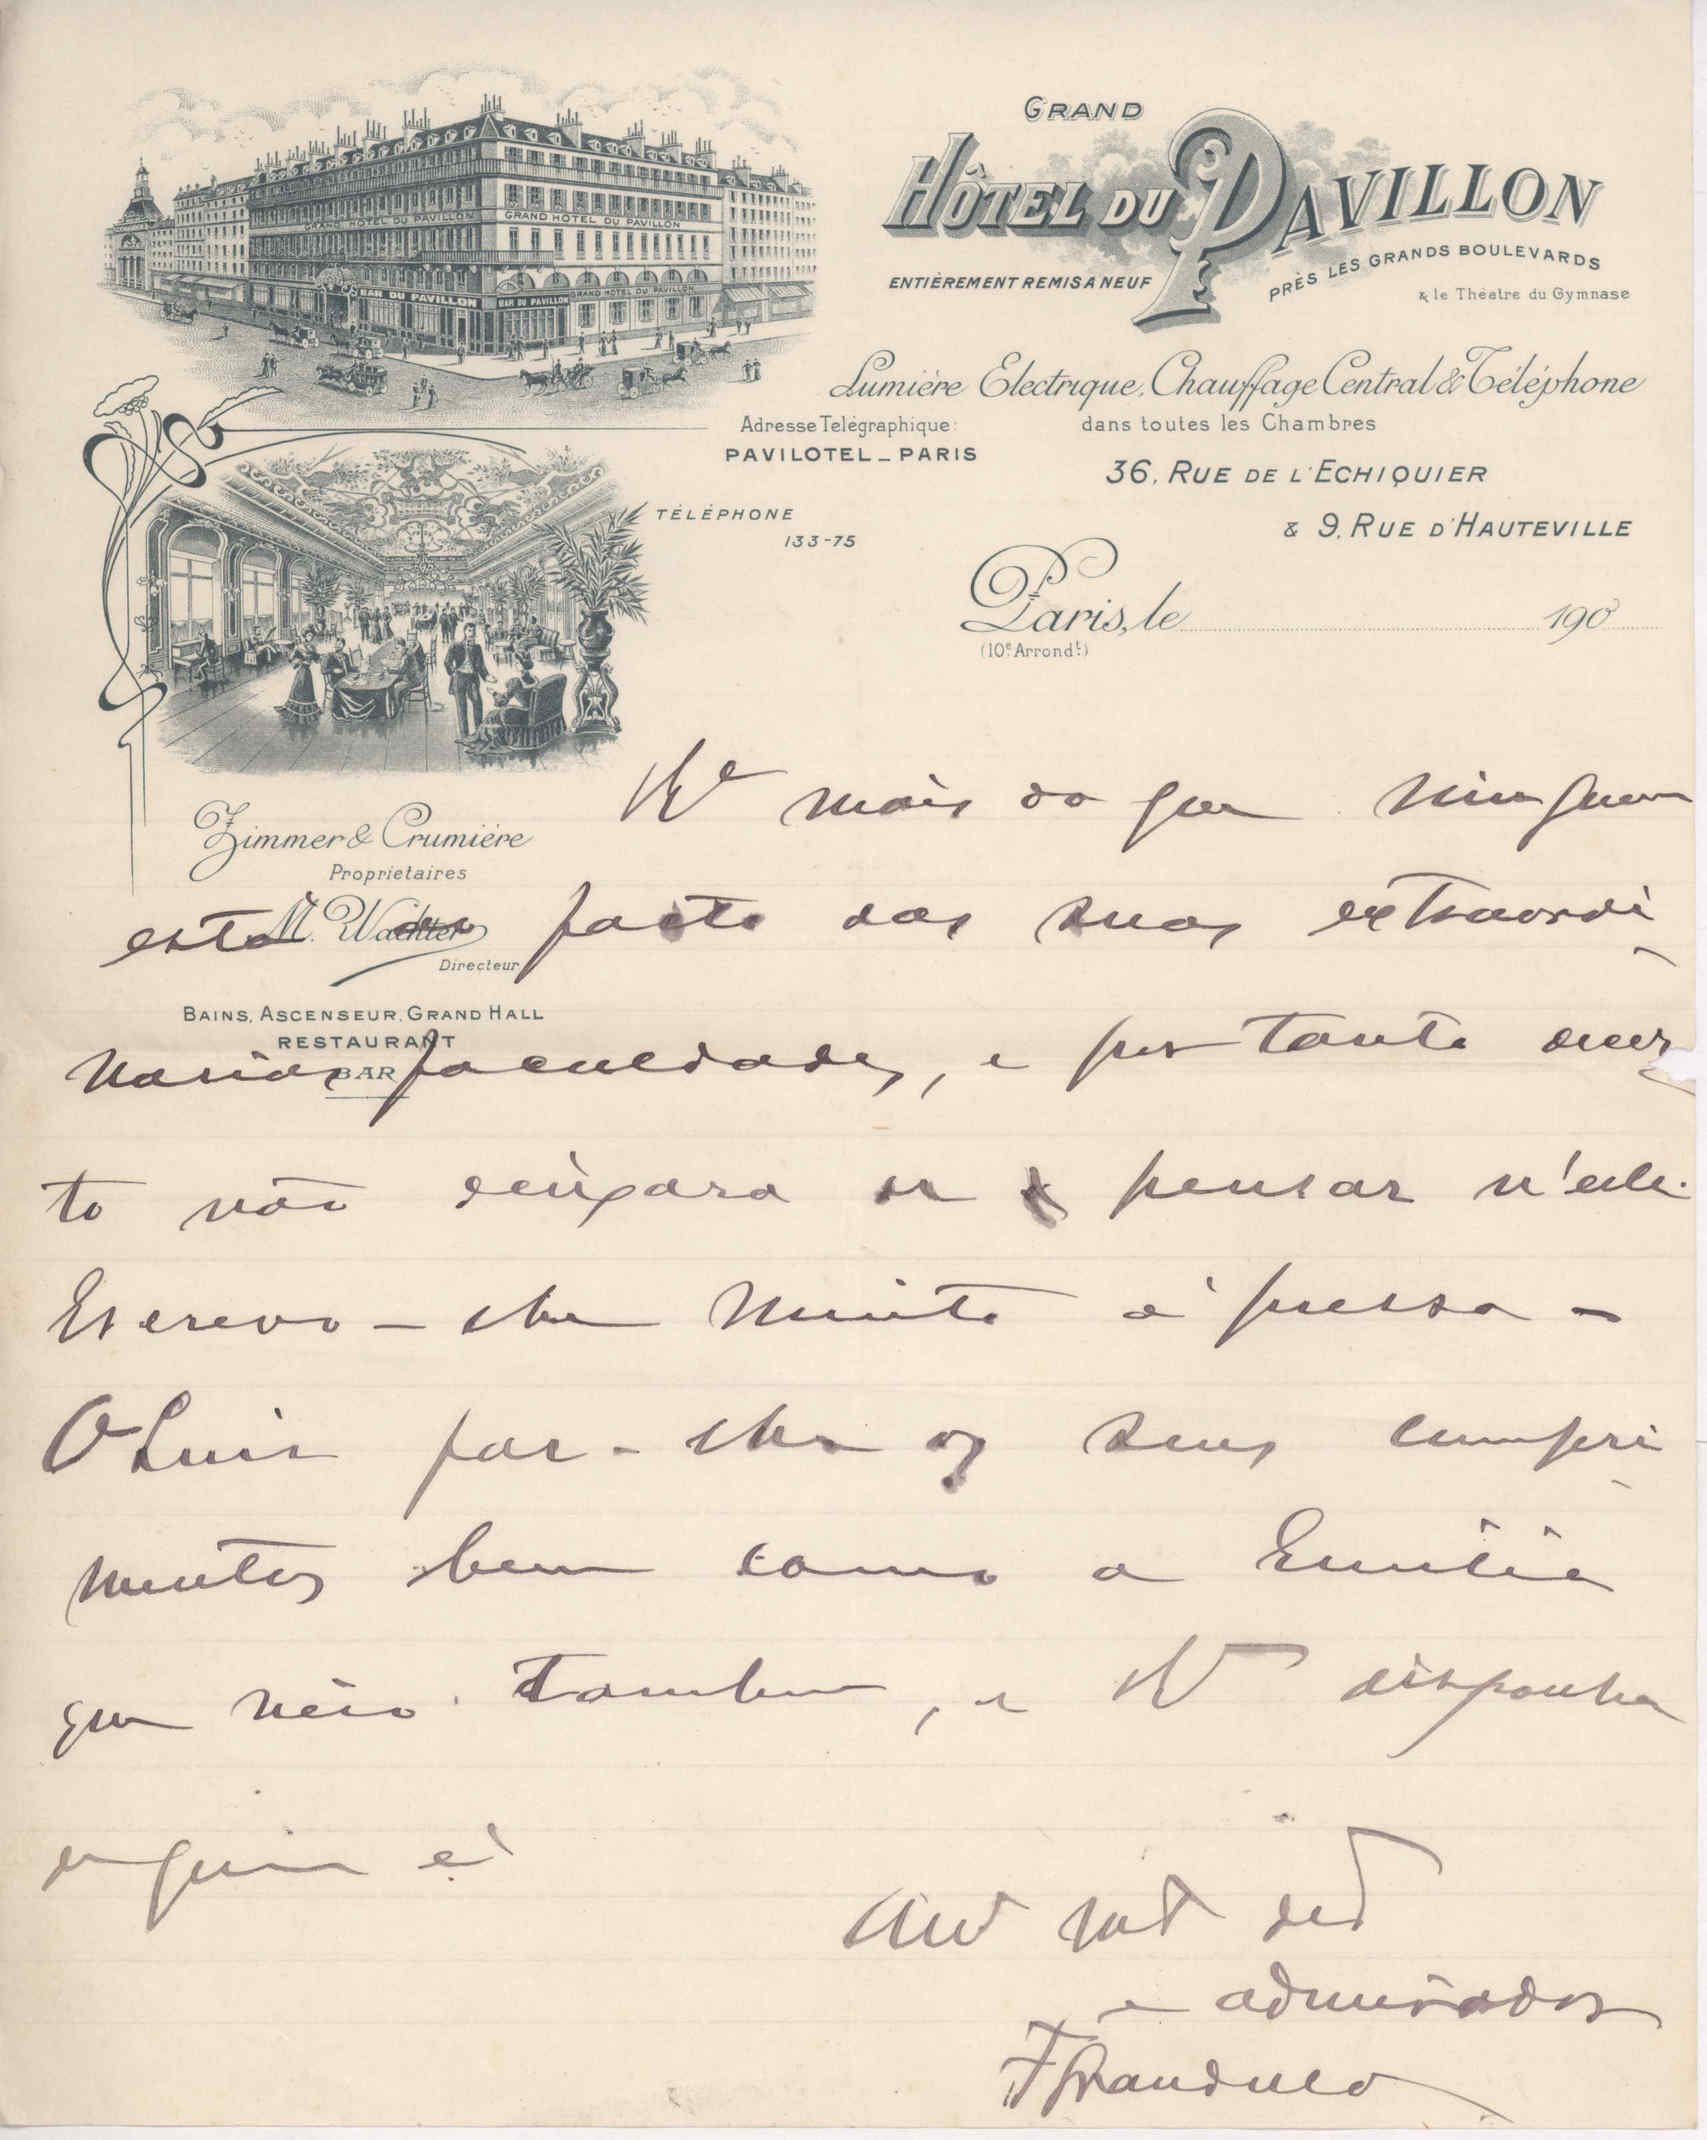 GRAND
HÔTEL DU PAVILLON
ENTIÈREMENT REMIS A NEUF
PRÈS LES GRANDS BOULEVARDS
& le Théatre du Gymnase
GRAND HOTEL DU PAVILLON
GRAND HOTEL DU PAVILLON
BAR DU PAVILLON
BAR DU PAVILLON
GRAND HOTEL DU PAVILLON
Lumière Electrique, Chauffage Central & Téléphone
dans toutes les Chambres
Adresse Télégraphique:
PAVILOTEL_PARIS
36, RUE DE L'ECHIQUIER
& 9, RUE D'HAUTEVILLE
TÉLÉPHONE
133-75
Paris, le 190
(10e Arrondt)
Zimmer & Crumière
Propriétaires
M. Wachter
Directeur
BAINS, ASCENSEUR, GRAND HALL
RESTAURANT
BAR
mais do que ninguem
está ao facto das suas extraordi
narias faculdades, e por tanto
to não deixara de pensar n'elle.
Escrevo-lhe muito á pressa -
O Luis faz-lhe os seus cumpri
mentos bem como a Emilia
que veio tambem, e disponha
de quem é
e admirador